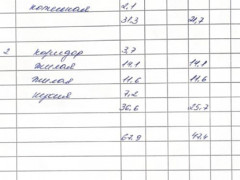 котельная 2,1
31,3 21,7
2 коридор 3,7
жилая 14,1 14,1
жилая 11,6 11,6
кухня 7,2
36,6 25,7
67,9 47,4